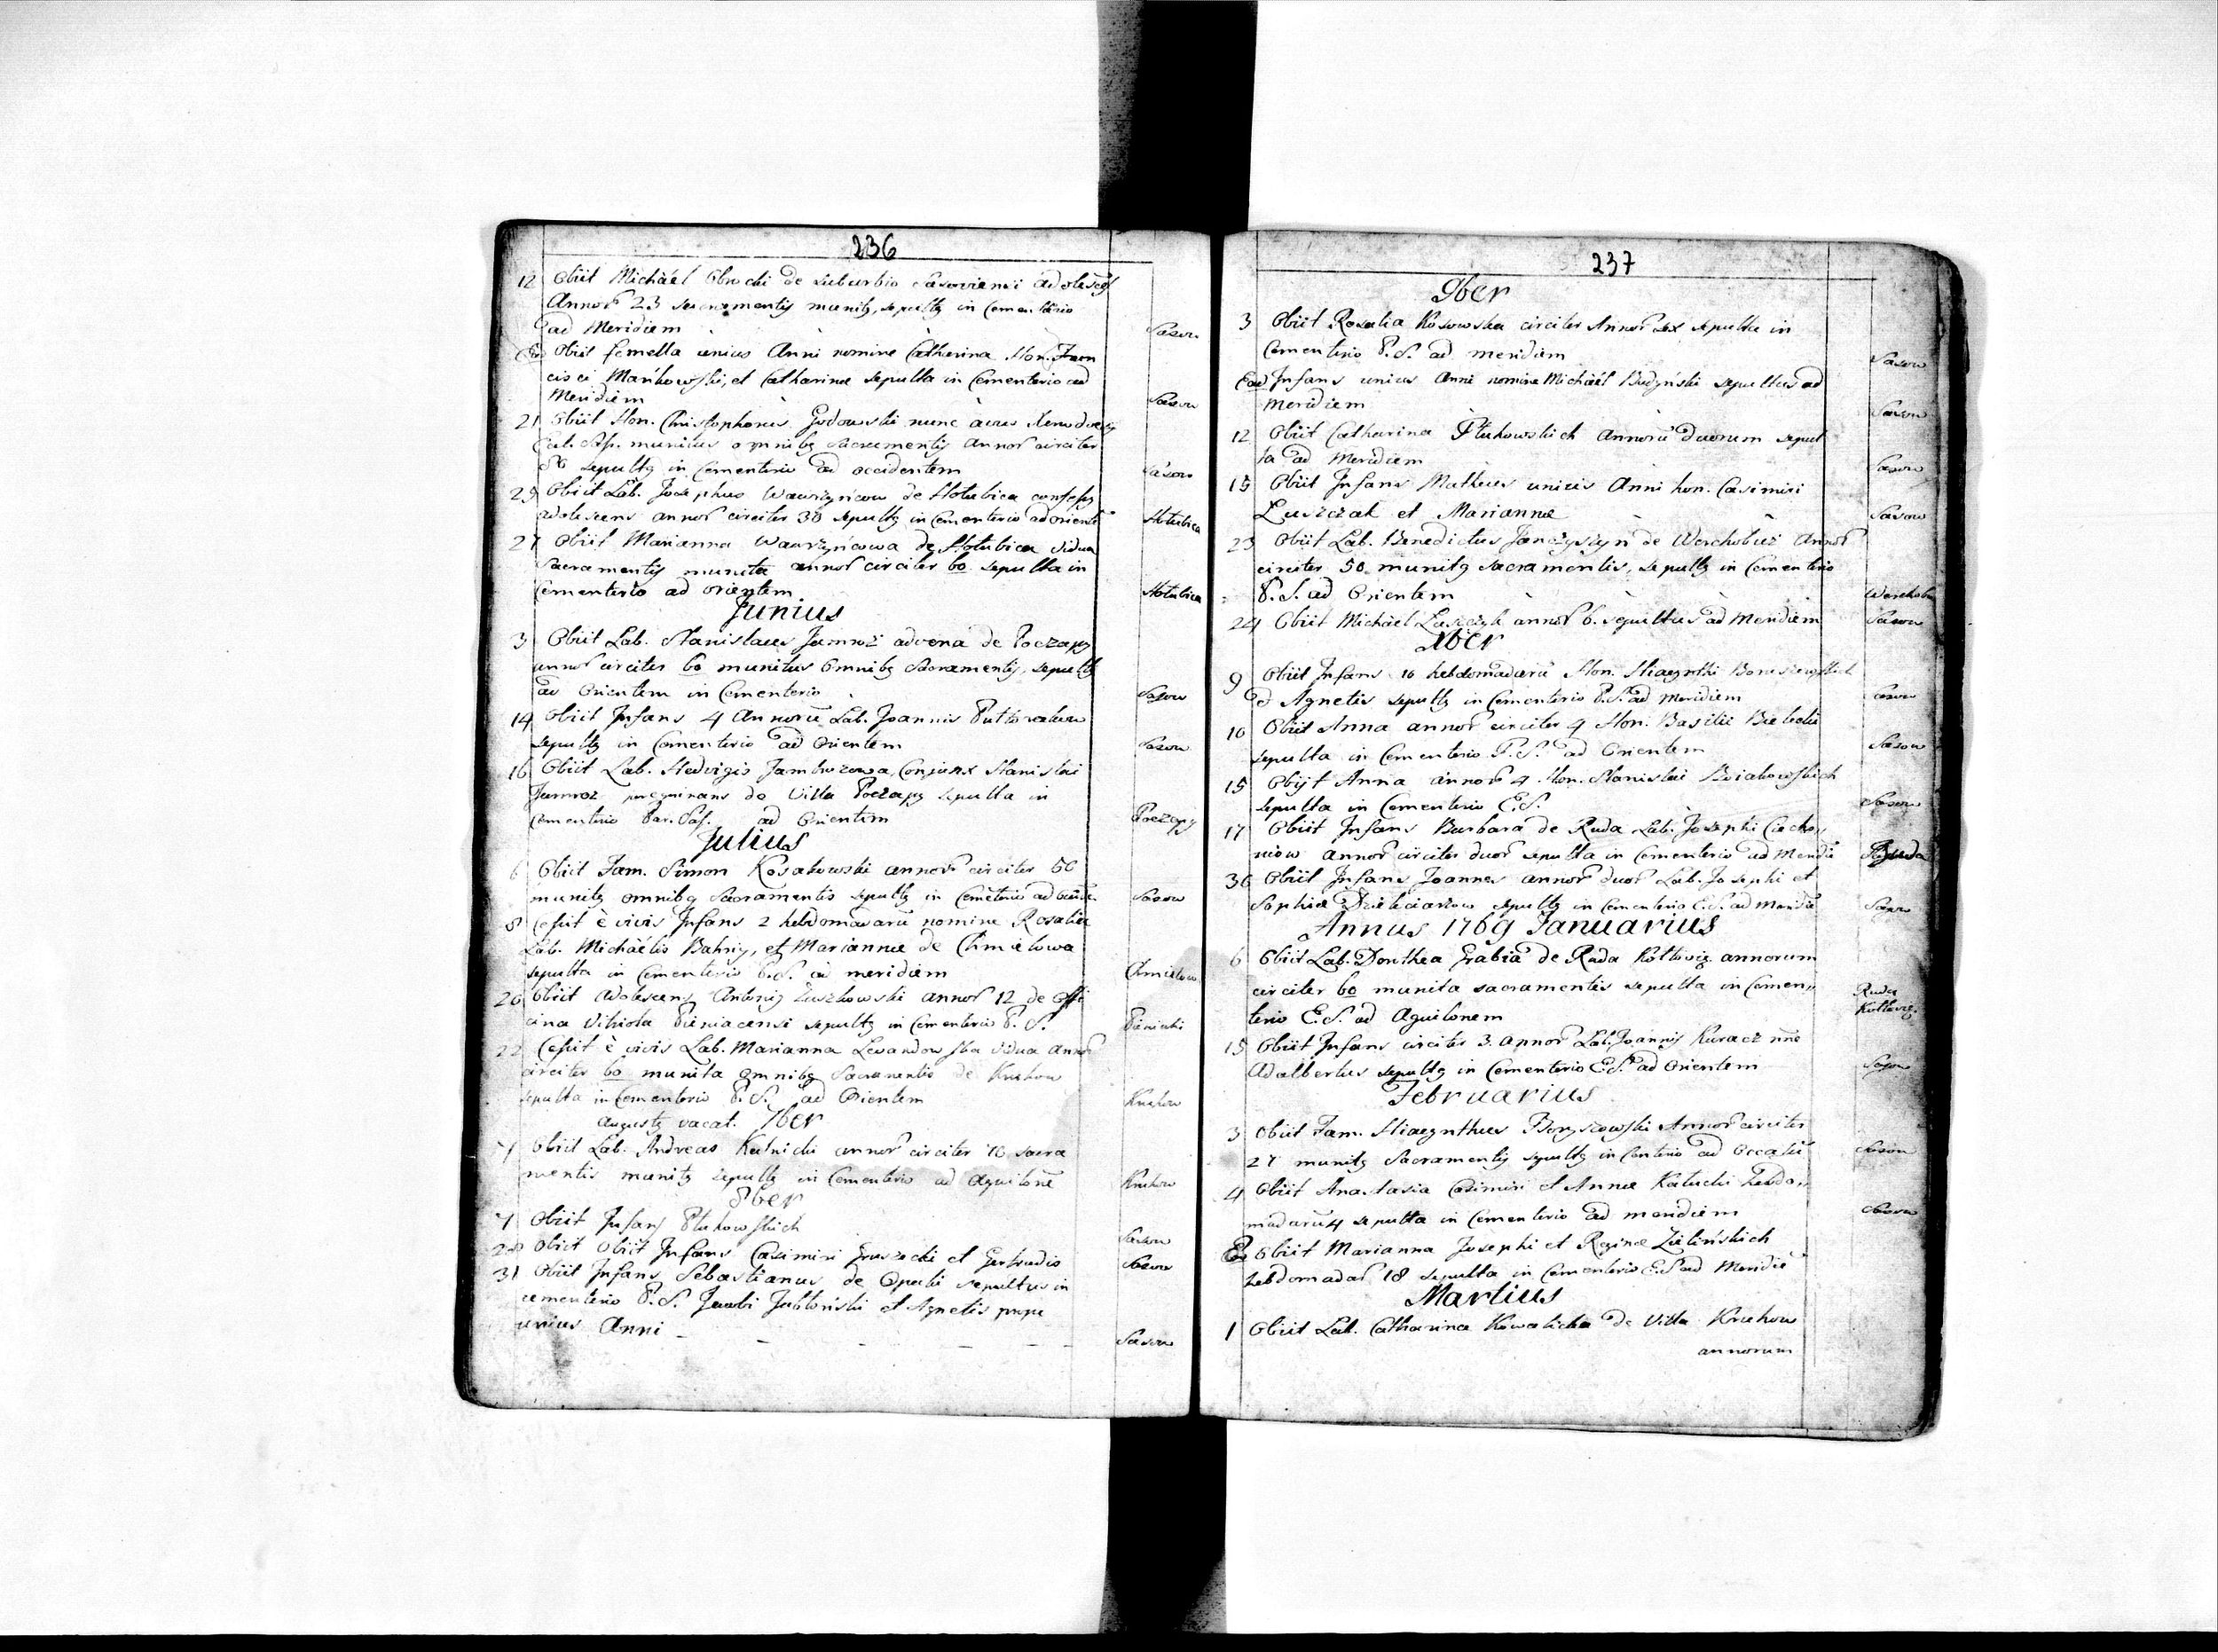 236
12 Obiit Michaël Obrochi de suburbio Sasoviensi adolesc
Annor 23 sacramentis munitg, sepultg in Cementerio
ad Meridiem Sasow
Obiit femella unius Anni nomine Catharina Hon. Fran
cisci Mańkowski, et Catharinæ sepulta in Cementerio ad
Meridiem Sasow
21 Obiit Hon. Christophorus Godowski nunc
munitus omnibg sacramentis annor circiter
sepultg in Cementerio ad occidentem Sasow
25 Obiit Lab. Josephus Wawrzyńcow de Hotubica confesg
adolescens annor circiter 30 sepultg in Cementerio ad orientē Hotubica
27 Obiit Marianna Wawrzyńcowa de Hotubica Vidua
Sacramentis munita annor circiter 60 sepulta in
Cementerio ad orientem Hotubica
Junius
3 Obiit Lab. Stanislaus Jamroz advena de Poczapy
annor circiter 60 munitus Omnibg Sacramentis, sepultg
ad Orientem in Cementerio Sasow
14 Obiit Infans 4 Annorū Lab. Joannis
sepultg in Cementerio ad Orientem Sasow
16 Obiit Lab. Hedvigis Jambrozowa, Conjunx Stanislai
Jamroz peregrinans de Villa Poczapy sepulta in
Cementerio Par. Sas. ad Orientem Poczapy
Julius
6 Obiit Fam. Simon Kosakowski annor circiter 50
munitg omnibg Sacramentis sepultg in Cemēterio ad Sasow
8 Cessit è vivis Infans 2 hebdomadarū nomine Rosalia
Lab. Michaëlis Bahrij, et Mariannæ de Chmielowa
sepulta in Cementerio P.S. ad meridiem Chmielowa
20 Obiit Adolescens Antonig Łuszkowski annor 12 de offi
cina Pieniacensi sepultg in Cementerio P. S. Pieniaki
22 Cessit è vivis Lab. Marianna Lewandowska Vidua annor
circiter 60 munita omnibg Sacramentis de Kruhow
sepulta in Cementerio P.S. ad Orientem Kruhow
Augustg vacat. 7ber
7 Obiit Lab. Andreas Kalnicki annor circiter 70 sacra
mentis munitg sepultg in Cementerio ad Aquilonē Kruhow
8ber
7 Obiit Infans Ptuhowskich Sasow
28 Obiit Obiit Infans Casimiri Gruszecki et Gertrudis Sasow
31 Obiit Infans Sebastianus de Opaki sepultus in
cementerio P.S. Jacobi Jabłoński et Agnetis prope
unius Anni – – – – – Sasow
237
9ber
3 Obiit Rosalia Kosowska circiter Annor sex sepulta in
Cementerio P.S. ad meridiem Sasow
Ead Infans unius anni nomine Michaël Budzyński sepultus ad
Meridiem Sasow
12 Obiit Catharina Ptuhowskich Annorū Duorum sepul
ta ad Meridiem Sasow
15 Obiit Infans Matheus unius Anni hon. Casimiri
Łuszczak et Mariannæ Sasow
23 Obiit Lab. Benedictus Janczyszyn de Werchobuż Annor
circiter 50 munitg Sacramentis, sepultg in Cementerio
P.S. ad Orientem Werchobu
24 Obiit Michaël Łuszczyk annor 6. sepultus ad Meridiem Sasow
Xber
9 Obiit Infans 16 hebdomadarū Hon. Hiacynthi Boruszewskich
et Agnetis sepultg in Cementerio P.S. ad Meridiem Sasow
10 Obiit Anna annor circiter 4 Hon. Basilii
sepulta in Cementerio P.S. ad Orientem Sasow
15 Obijt Anna annor 4 Hon. Stanislai Bojakowskich
sepulta in Cementerio E.S. Sasow
17 Obiit Infans Barbara de Ruda Lab. Josephi Ciecho„
niow annor circiter duor sepulta in Cementerio ad Meridiē Ruda
30 Obiit Infans Joannes annor duor Lab. Josephi et
Sophiæ sepultg in Cementerio E.S. ad Meridiē Sasow
Annus 1769 Januarius
6 Obiit Lab. Dorothea Grabia de Ruda Kołtowiz. annorum
circiter 60 munita sacramentis sepulta in Cemen„
terio E.S. ad Aquilonem Ruda
Kołtowiz.
15 Obiit Infans circiter 3. annor Lab. Joannis Kuracz nnē
Adalbertus sepultg in Cementerio E.S. ad Orientem Sasow
Februarius
3 Obiit Fam. Hiacynthus Boryszowski Annor circiter
27 munitg Sacramentis sepultg in Centerio ad Occasū Sasow
4 Obiit Anastasia Casimiri et Annæ Kaluchi hebdo„
madarū 4 sepulta in Cementerio ad meridiem Sasow
Ead Obiit Marianna Josephi et Reginæ Zielińskich
hebdomadar 18 sepulta in Cementerio E.S. ad Meridiē
Martius
1 Obiit Lab. Catharina Kowalicha de Villa Kruhow
annorum